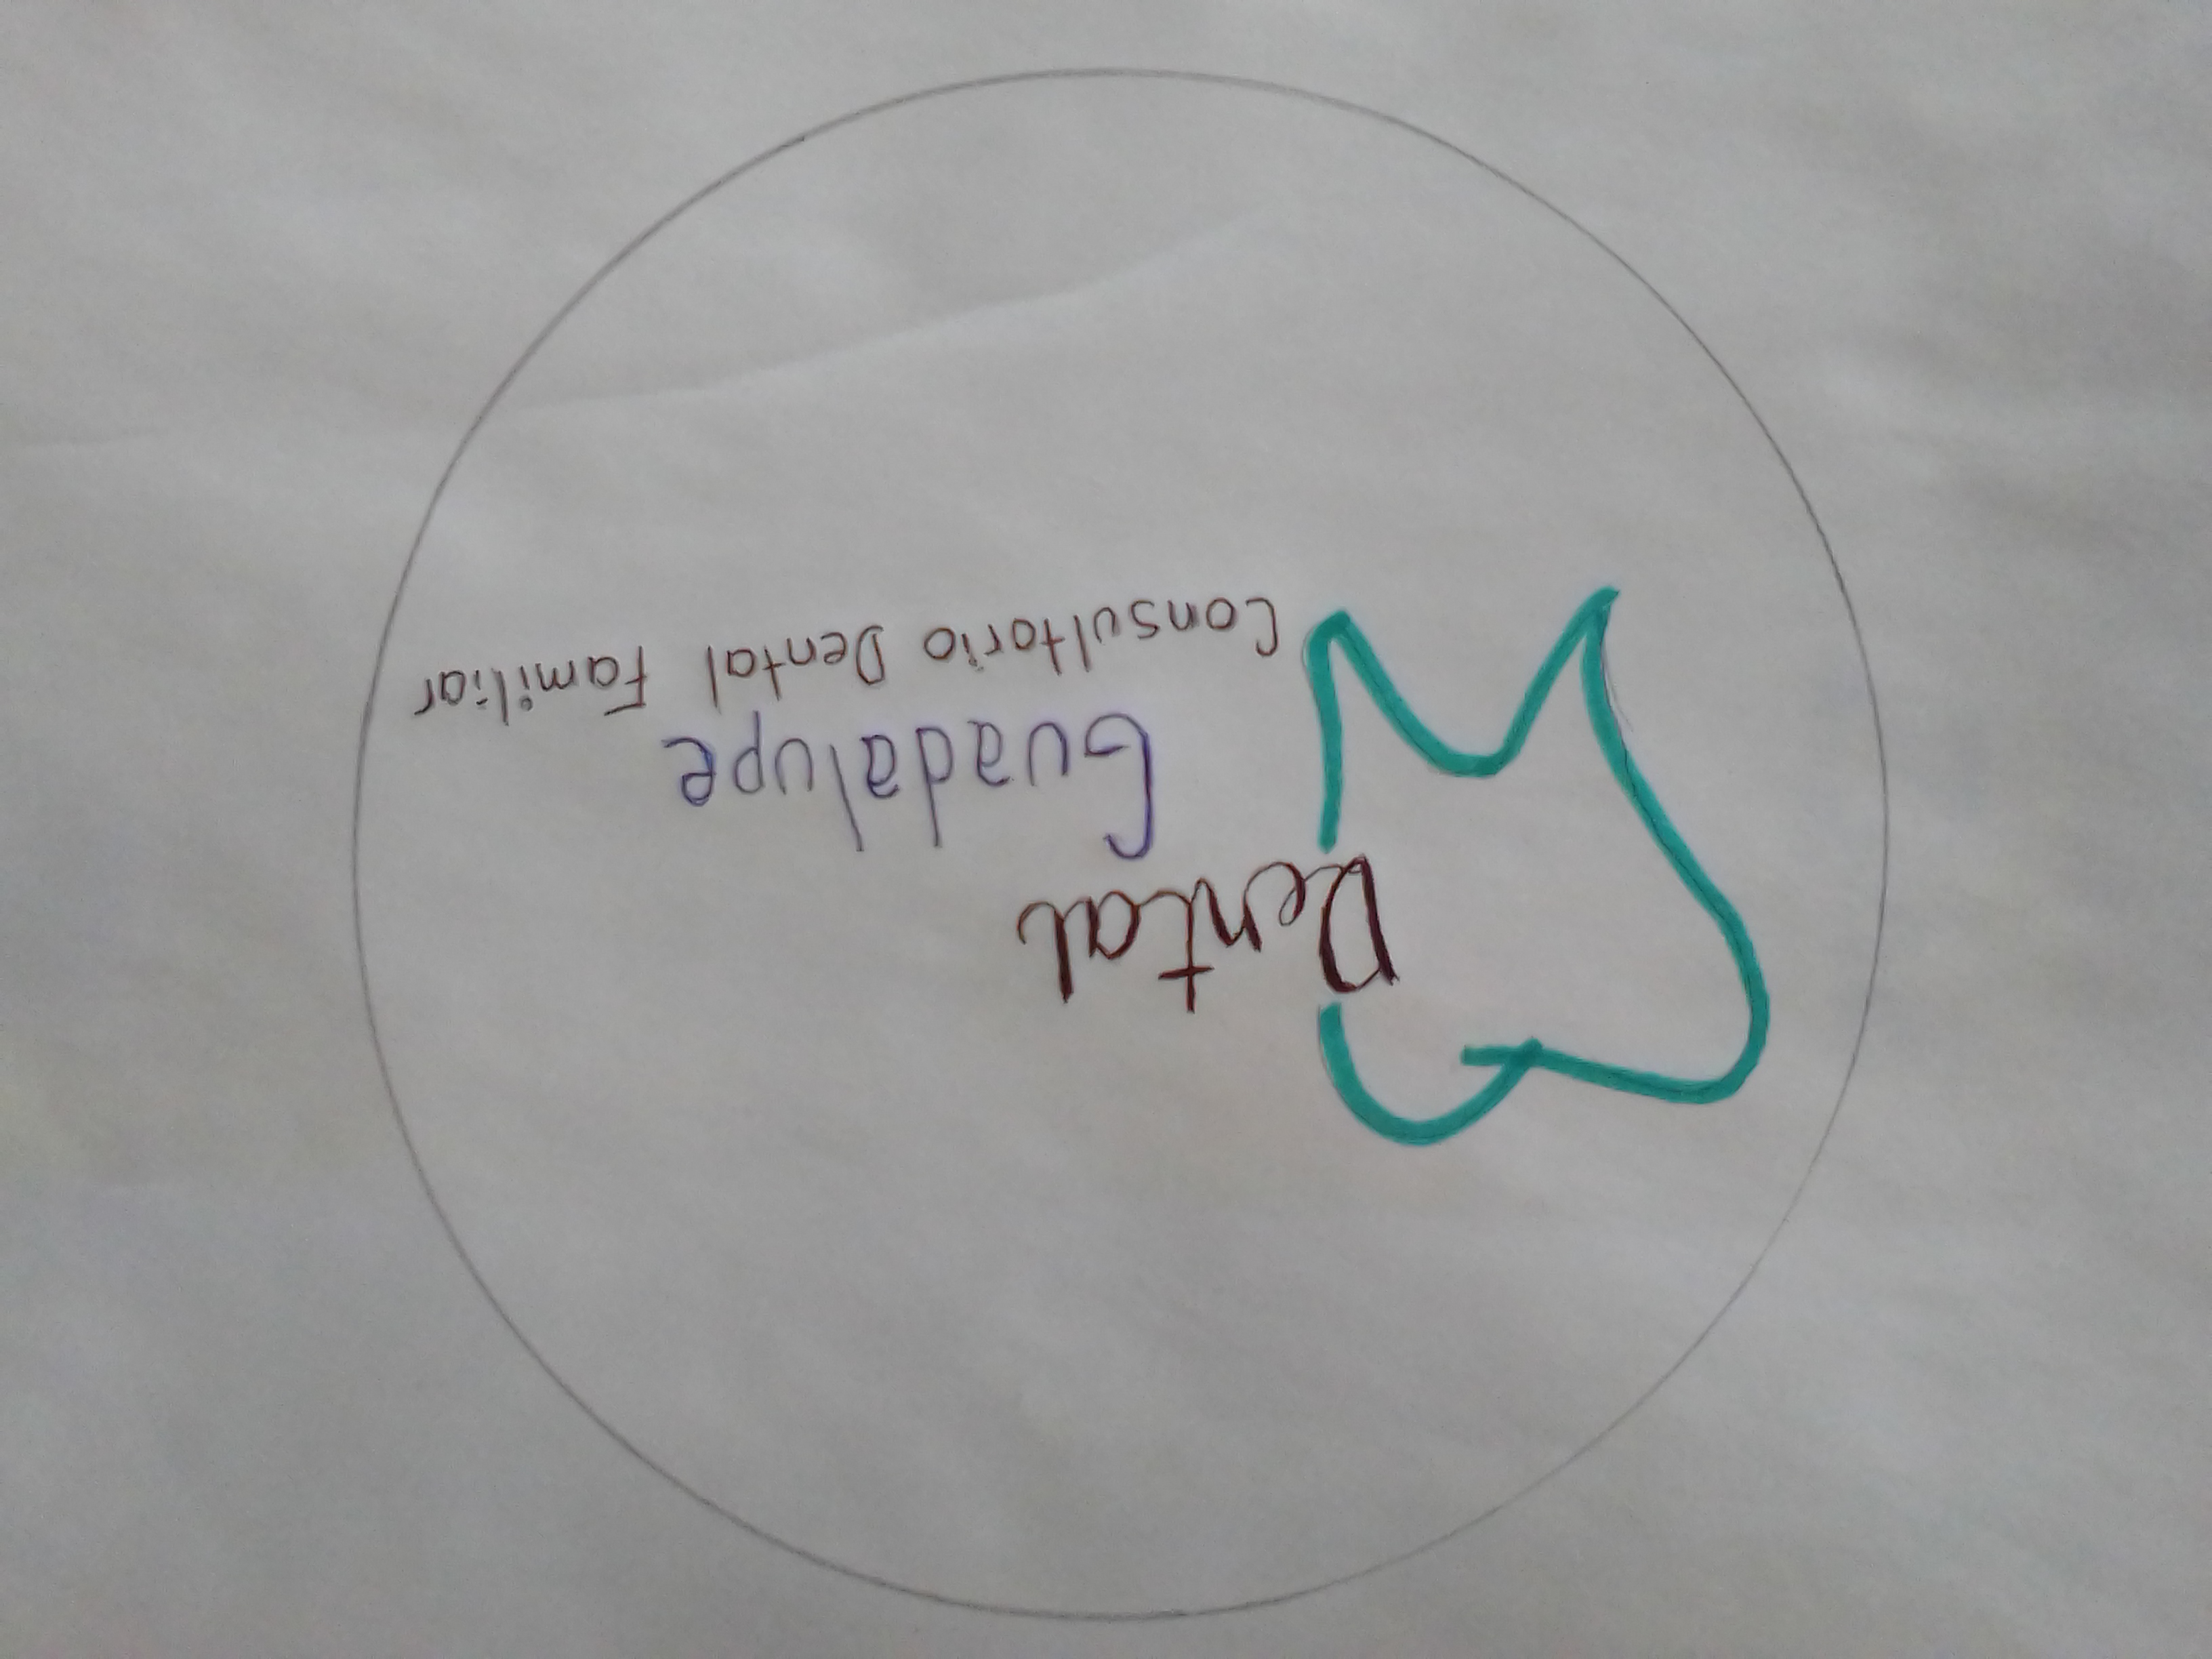 Dental
Guadalupe
Consultorio Dental Familiar